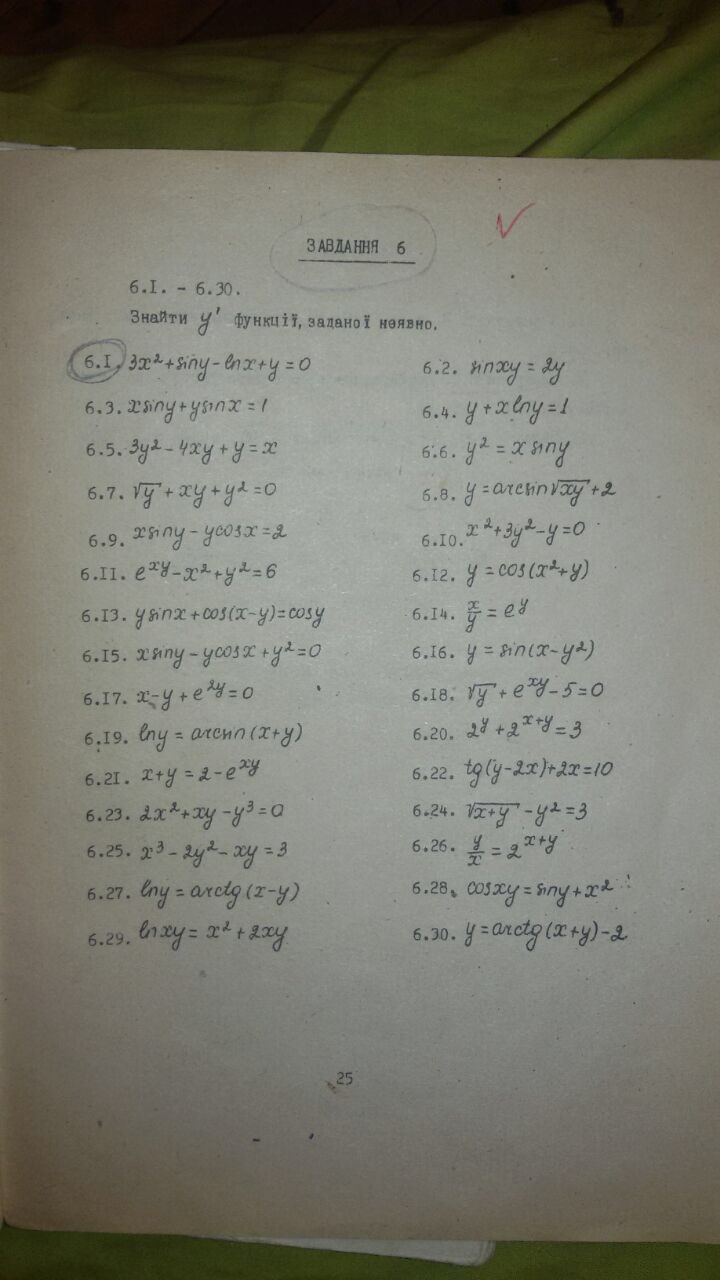 ЗАВДАННЯ 6
6.I. - 6.30.
Знайти y' функції, заданої неявно.
6.I. 3x² + siny - lnx + y = 0
6.2. sinxy = 2y
6.3. xsiny + ysinx = 1
6.4. y + xlny = 1
6.5. 3y² - 4xy + y = x
6.6. y² = xsiny
6.7. √y + xy + y² = 0
6.8. y = arcsin√xy + 2
6.9. xsiny - ycosx = 2
6.I0. x² + 3y² - y = 0
6.II. e^xy - x² + y² = 6
6.I2. y = cos(x² + y)
6.I3. ysinx + cos(x-y) = cosy
6.I4. x/y = e^y
6.I5. xsiny - ycosx + y² = 0
6.I6. y = sin(x - y²)
6.I7. x - y + e^2y = 0
6.I8. √y + e^xy - 5 = 0
6.I9. lny = arcsin(x+y)
6.20. 2^y + 2^x+y = 3
6.2I. x + y = 2 - e^xy
6.22. tg(y-2x) + 2x = 10
6.23. 2x² + xy - y³ = 0
6.24. √x+y - y² = 3
6.25. x³ - 2y² - xy = 3
6.26. y/x = 2^x+y
6.27. lny = arctg(x-y)
6.28. cosxy = siny + x²
6.29. lnxy = x² + 2xy
6.30. y = arctg(x+y) - 2
25